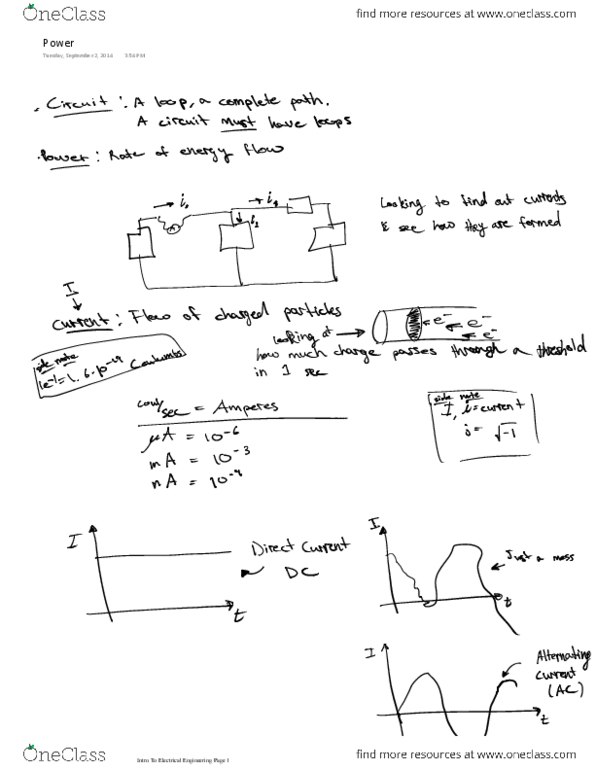 OneClass
find more resources at www.oneclass.com
Power
Tuesday, September 2, 2014 3:56 PM
. Circuit : A loop, a complete path.
A circuit must have loops
. Power : Rate of energy flow
Looking to find out currents
& see how they are formed
I
Current : Flow of charged particles
looking at
how much charge passes through a threshold
in 1 sec
e- e- e-
side note
1e-1 = 1.6·10-19 Coulombs
coul/sec = Amperes
μA = 10-6
mA = 10-3
nA = 10-9
side note
I, i = current
j = √-1
I
Direct Current
DC
t
I
Just a mess
t
I
Alternating
current
(AC)
t
OneClass
Intro To Electrical Engineering Page 1
find more resources at www.oneclass.com